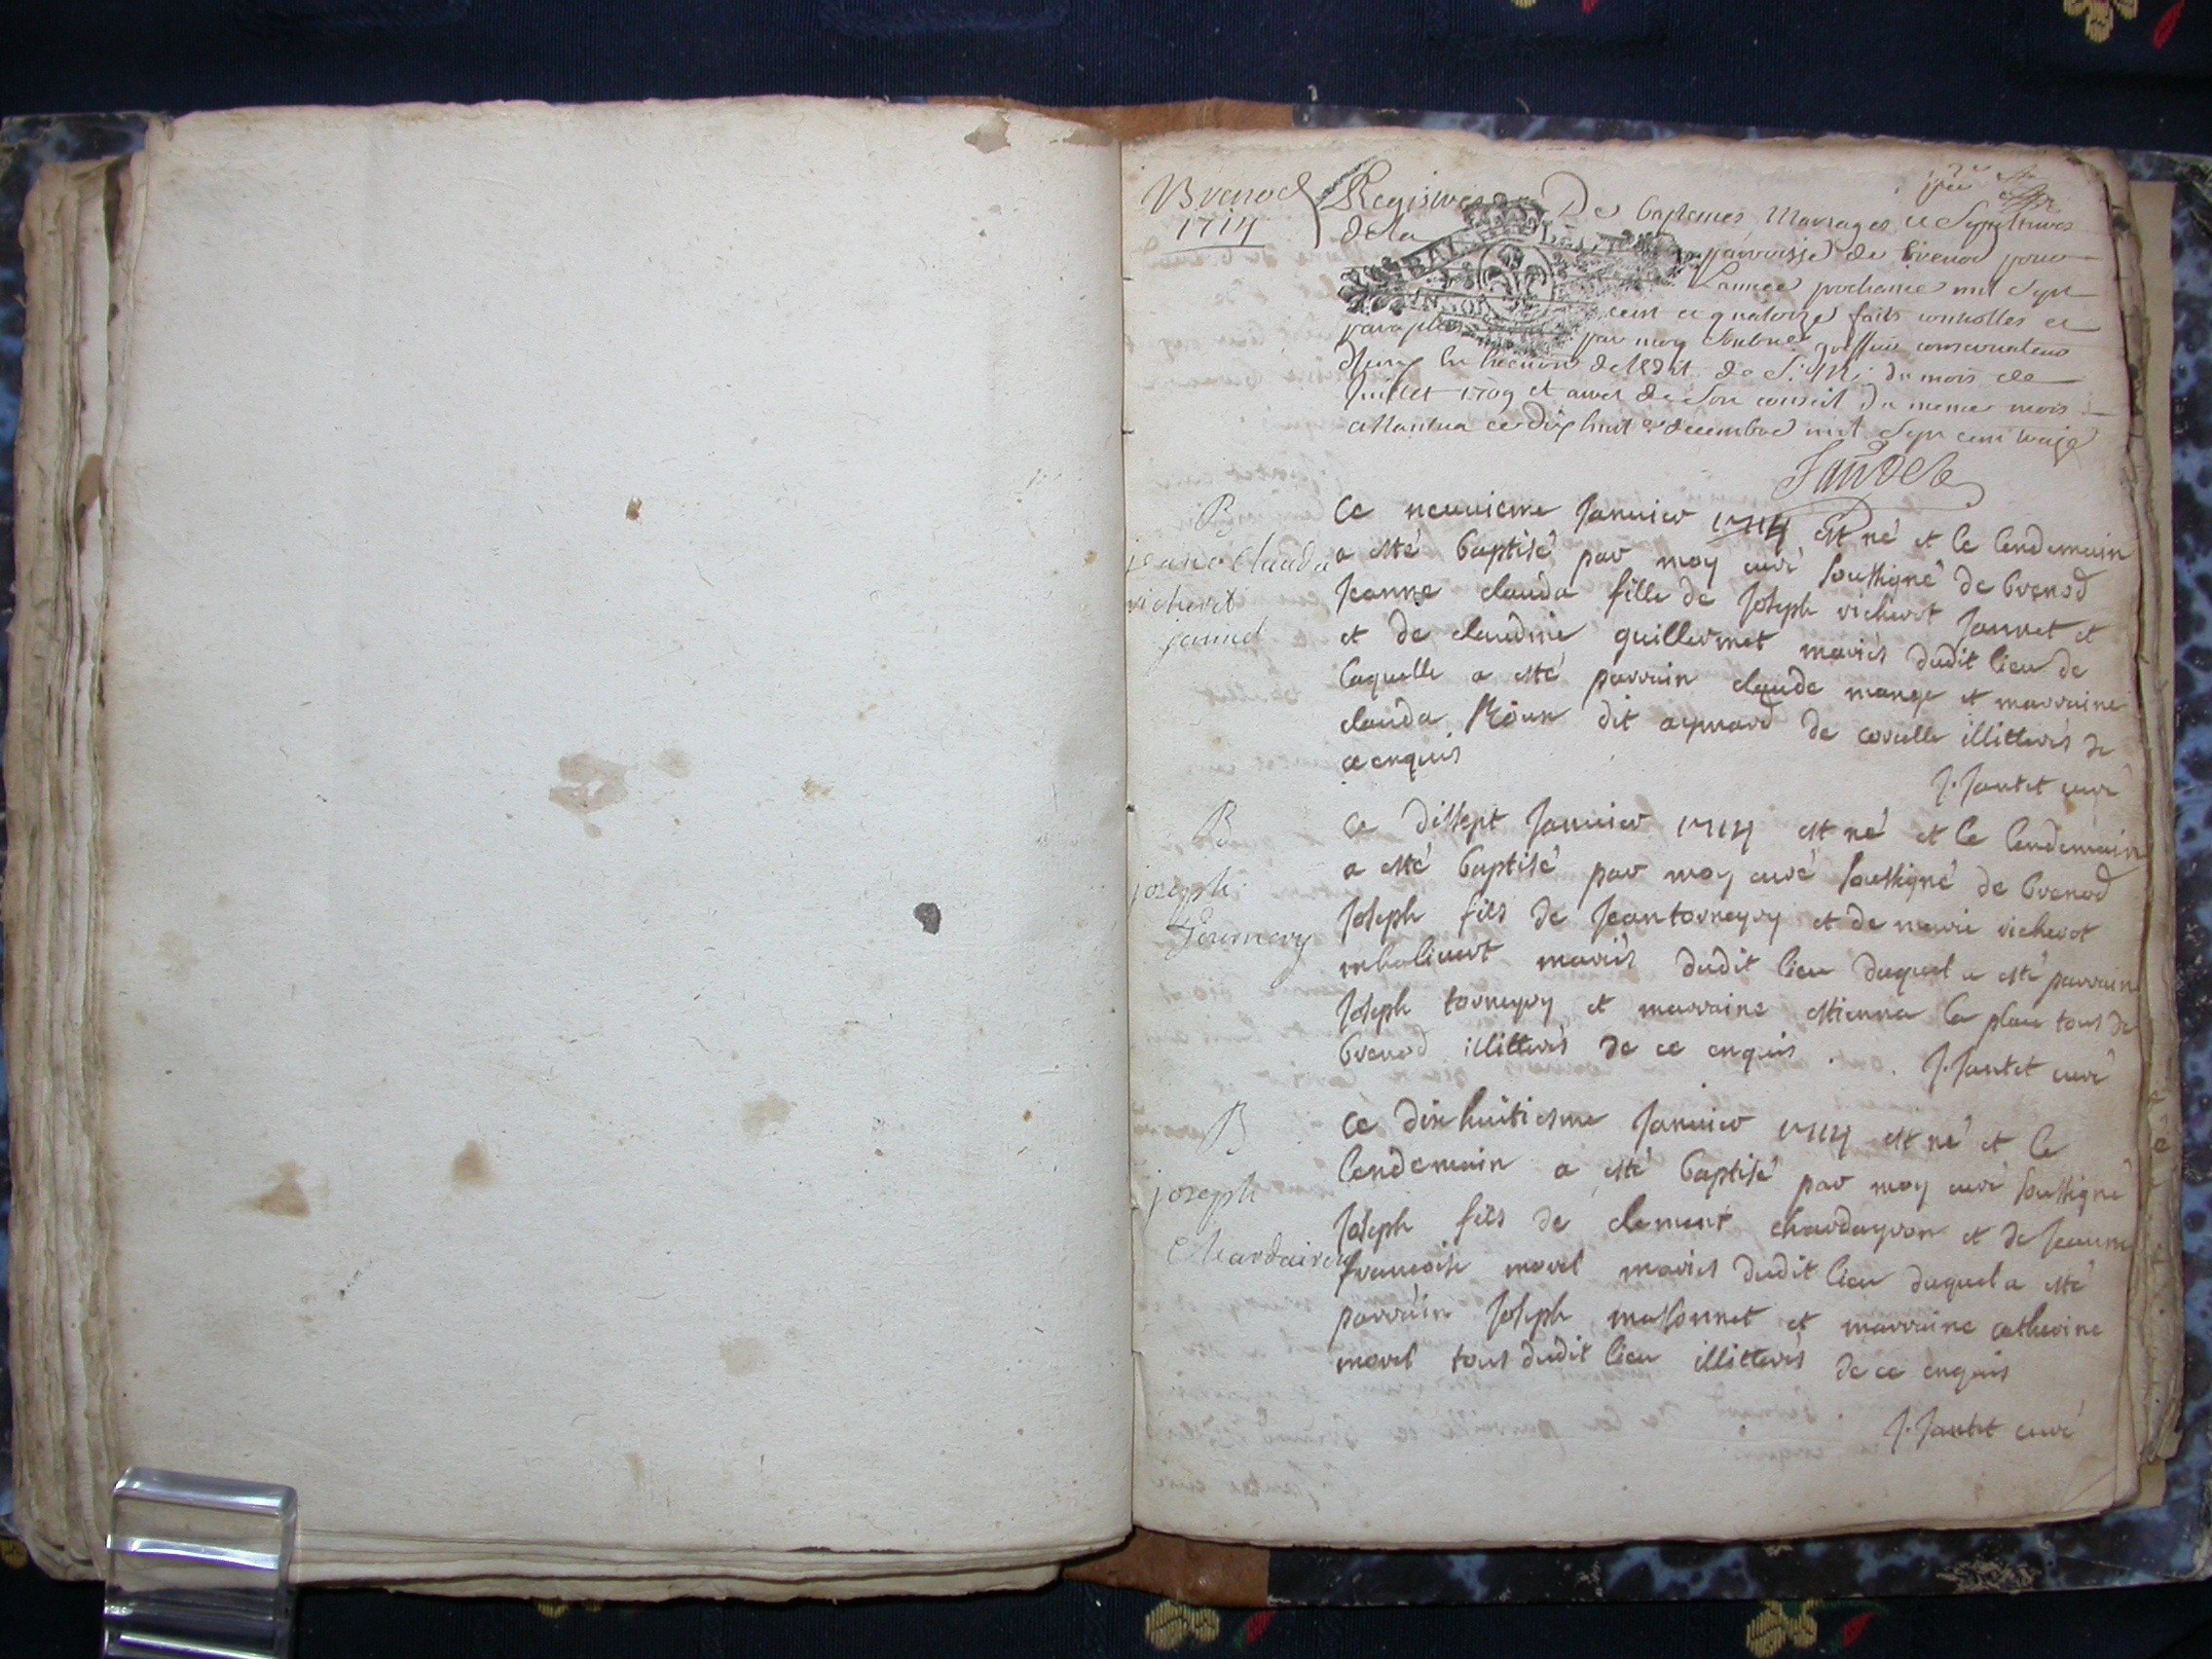 Brenod
1714
Registres Des baptemes Mariages et Sepultures
de la parroisse de brenod pour
L'annee prochaine mil Sept
cent et quatorze faits controlles et
paraphes par moy greffier conservateur
de ledit de S. M. du mois de
Juillet 1709 et arret de Son conseil du meme mois
a Nantua ce dix huit decembre mil Sept cent treize
B
jeane clauda
vicherit
jannet
Ce neuuieme Januier 1714 est né et le lendemain
a esté baptisé par moy curé soussigné de brenod
Jeanne clauda fille de Joseph vicherot Jannet et
et de claudine guillermet mariés dudit lieu de
laquelle a esté parrain claude mange et marraine
clauda dit aymard de corcelle illitterés de
ce enquis
J. Jantet curé
B
joseph
Tournery
Ce dissept Januier 1714 est né et le lendemain
a esté baptisé par moy curé soussigné de brenod
Joseph fils de Jean torneyry et de marie vicherot
mariés dudit lieu duquel a esté parrain
Joseph torneyry et marraine estienna la place tous de
brenod illitterés de ce enquis . J. Jantet curé
B
joseph
Chardairon
Ce dixhuitiesme Januier 1714 est né et le
lendemain a esté baptisé par moy curé soussigné
Joseph fils de clement chardayron et de Jeanne
francoise morel mariés dudit lieu duquel a esté
parrain Joseph massonnet et marraine catherine
morel tous dudit lieu illitterés de ce enquis
J. Jantet curé